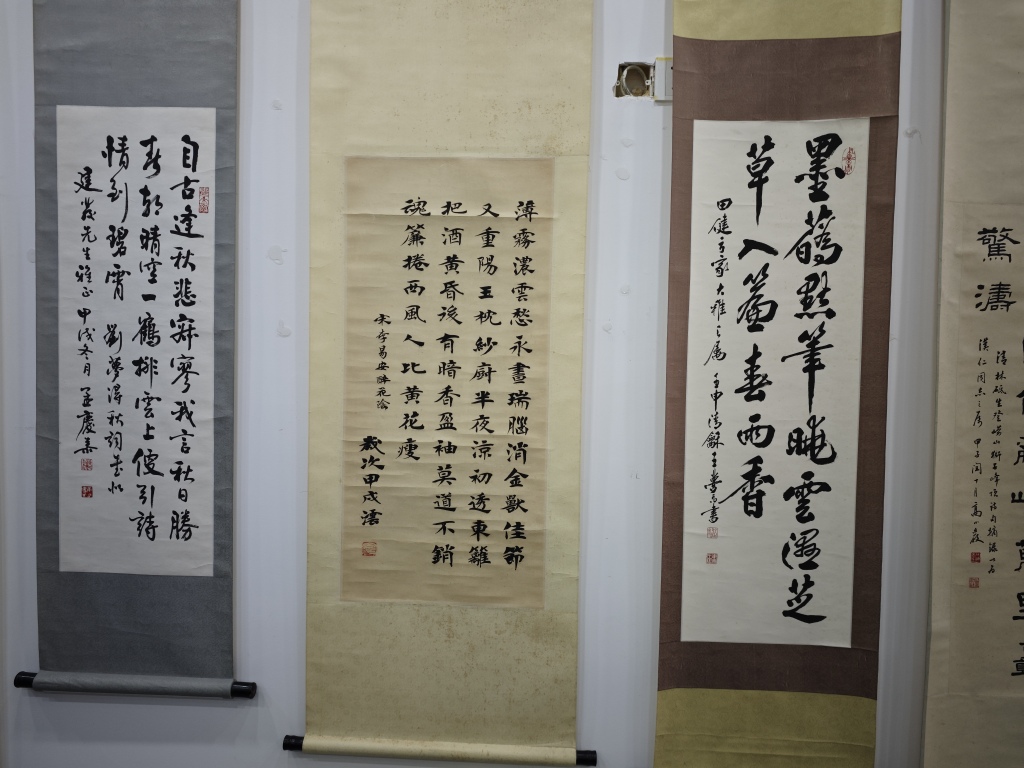 自古逢秋悲寂寥我言秋日勝
春朝晴空一鶴排雲上便引詩
情到碧霄 劉夢得秋詞
建歲先生雅正 甲戌冬月
薄霧濃雲愁永晝瑞腦消金獸佳節
又重陽玉枕紗廚半夜涼初透東籬
把酒黃昏後有暗香盈袖莫道不銷
魂簾捲西風人比黃花瘦
宋李易安醉花陰
歲次甲戌
墨 點筆曉雲濕芝
草入簾春雨香
田健方家大雅之屬 壬申清龢王 書
驚濤
漢仁同志之屬 甲子閏十月高小岩